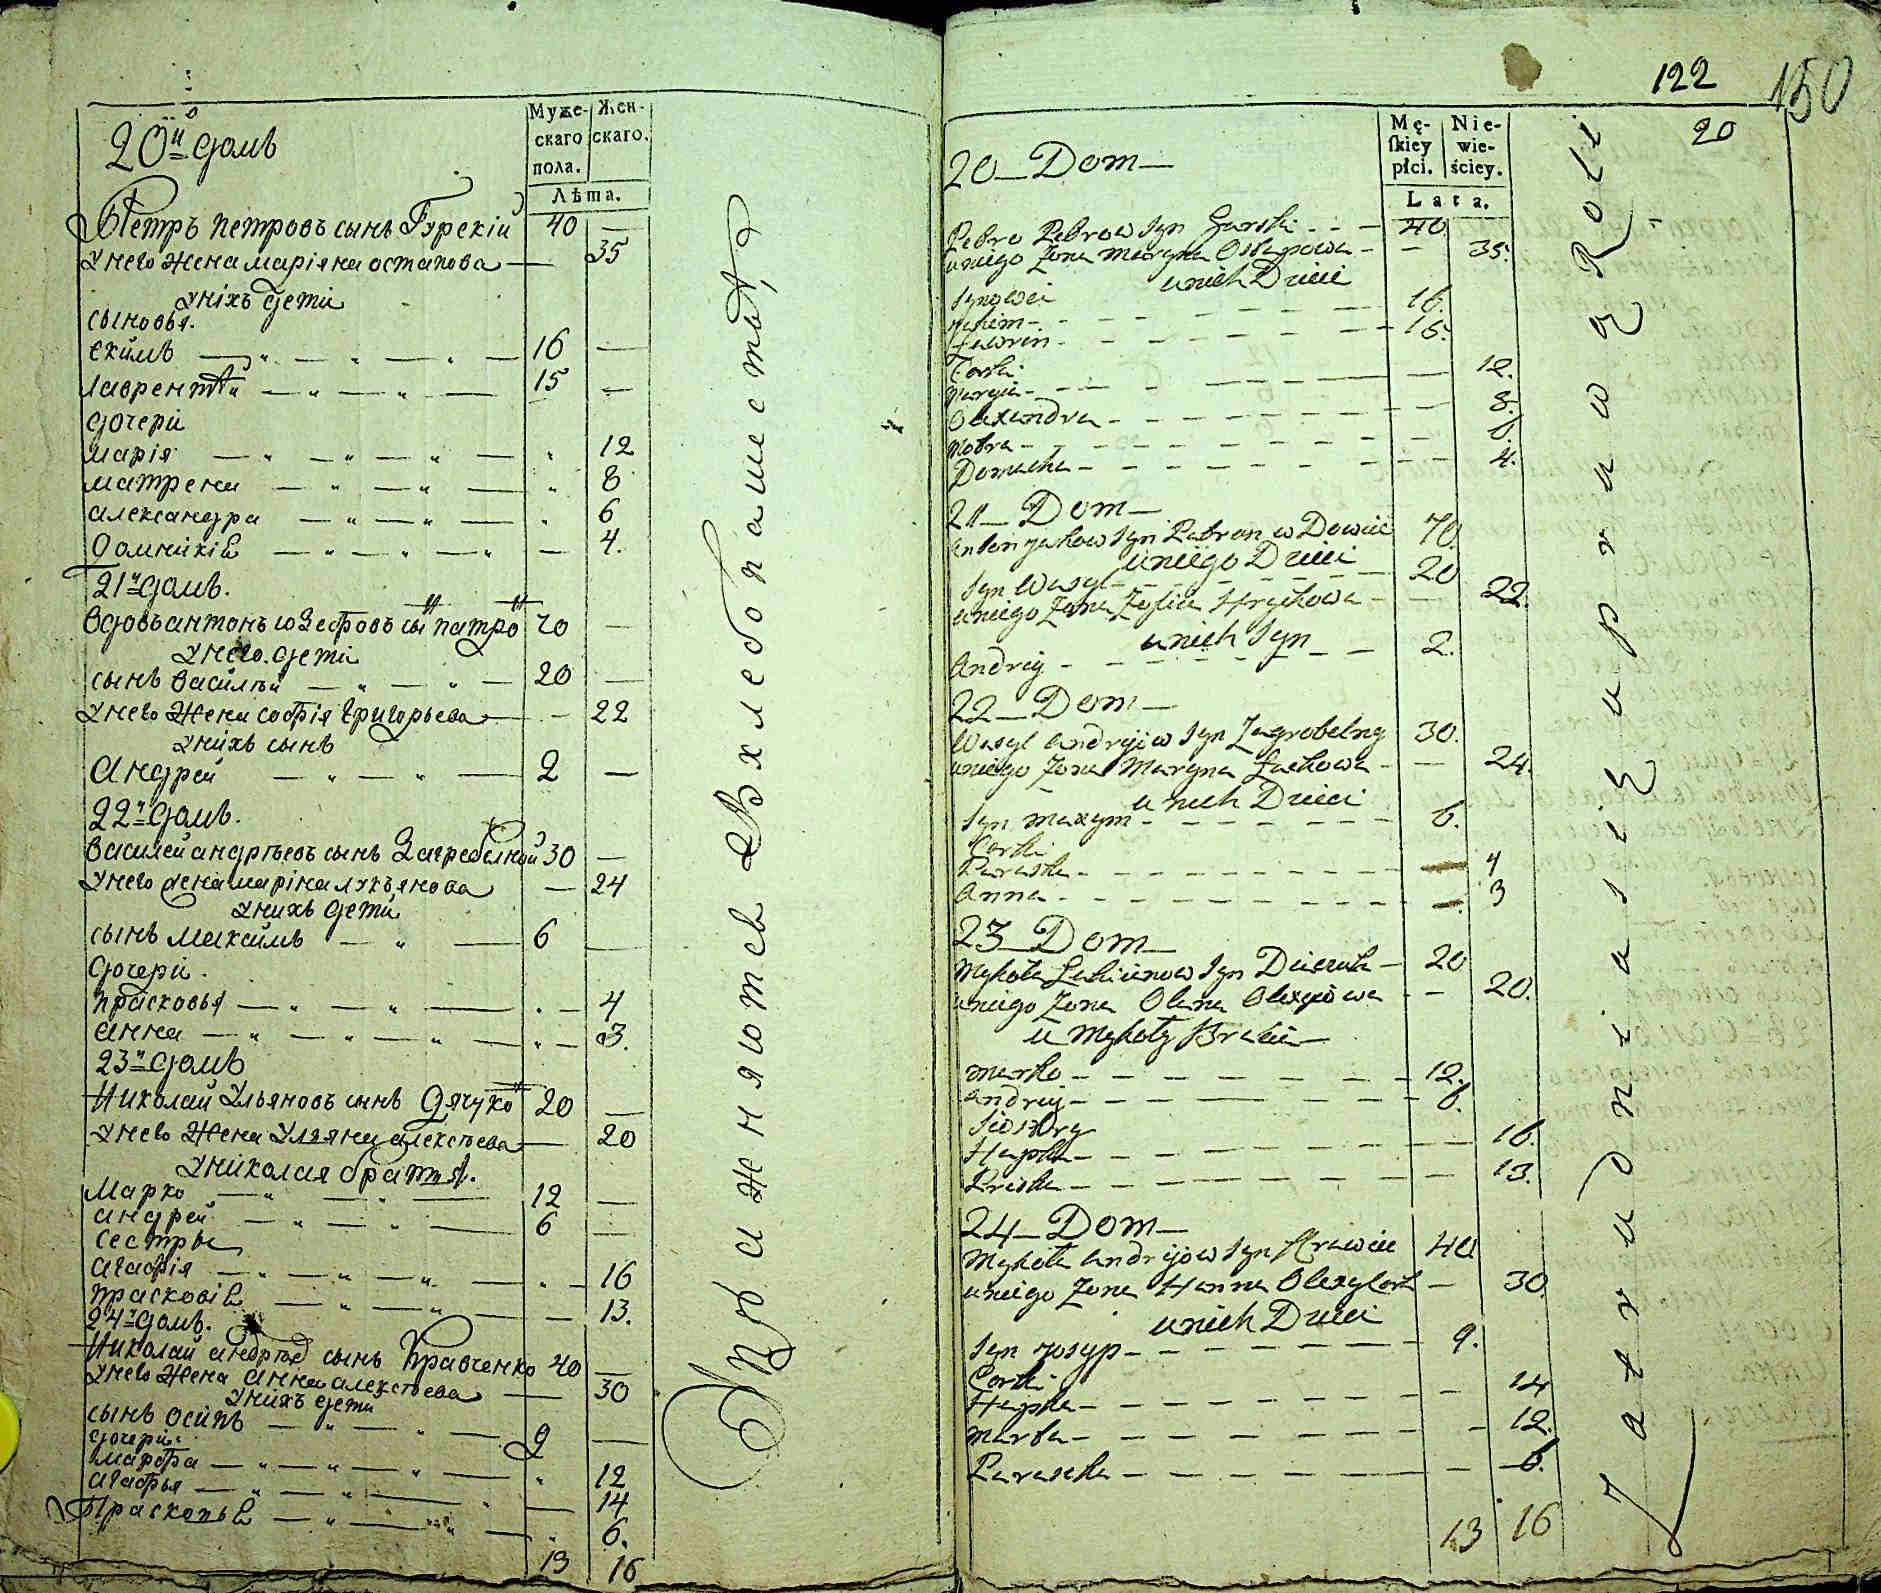 20й домъ
Муже- Жен-
скаго скаго.
пола.
Лѣта.
Петръ петровъ сынъ Гурскій 40 —
У него жена маріяна остапова — 35
У ніхъ дети
сыновья.
екимъ 16 —
лаврентѣй 15 —
дочери
марія 12
матрена 8
александра 6
домникія 4.
21й домъ.
вдовъ антонъ сынъ патро 70 —
У него дети
сынъ василѣй 20 —
У него жена софія григорьева — 22
У нихъ сынъ
Андрей 2 —
22й домъ.
василей андрѣевъ сынъ Загребелной 30 —
У него жена марина лукъянова — 24
У нихъ дети
сынъ максимъ 6
дочери.
прасковья 4
анна 3.
23й домъ
Николай Ульяновъ сынъ дячуко 20 —
У нево жена Ульяна алексѣева — 20
У николая братья.
Марко 12 —
андрей 6 —
сестры
агафія 16
прасковія 13.
24й домъ.
Николай андрѣев сынъ Кравченко 40 —
У нево жена анна алексѣева — 30
У нихъ дети
сынъ осипъ 9 —
дочери:
марфа 12
агафья 14
Прасковья 6.
13 16
Упражняютсь въ хлебопашестве
122 150
20
20 Dom
Mę- Nie-
ſkiey wie-
płci. ściey.
Lata.
Petro Petrow Syn Gurski 40
u niego Zona maryna Ostapowa 35.
u nich Dzieci
Synowie
Jakim 16.
Ławrin 15.
Corki
marya 12.
Olexandra 8.
motra 6.
Domacha 4.
21 Dom
Anton Syn Patron w Dowiec 70.
u niego Dzieci
Syn Wasyl 20
u niego Zona Zofia Hryckowa 22.
u nich Syn
Andriy 2.
22 Dom
Wasyl Andryiow Syn Zagrobelny 30.
u niego Zona Maryna Łuckowa 24.
u nich Dzieci
Syn maxym 6.
Corki
Paraska 4
Anna 3
23 Dom
Mykoła Syn Dziczuk 20
u niego Zona Olana Olexyiowa 20.
u Mykoły Bracia
marko 12.
andriy 6.
Siostry
Hapka 16.
Priska 13.
24 Dom
Mykoła Andryiow Syn Krawiec 40
u niego Zona Hanna 30.
u nich Dzieci
Syn Josyp 9.
Corki
Hapka 14
marta 12.
Paraska 6.
13 16
Zatrudniaiasię uprawą Roli